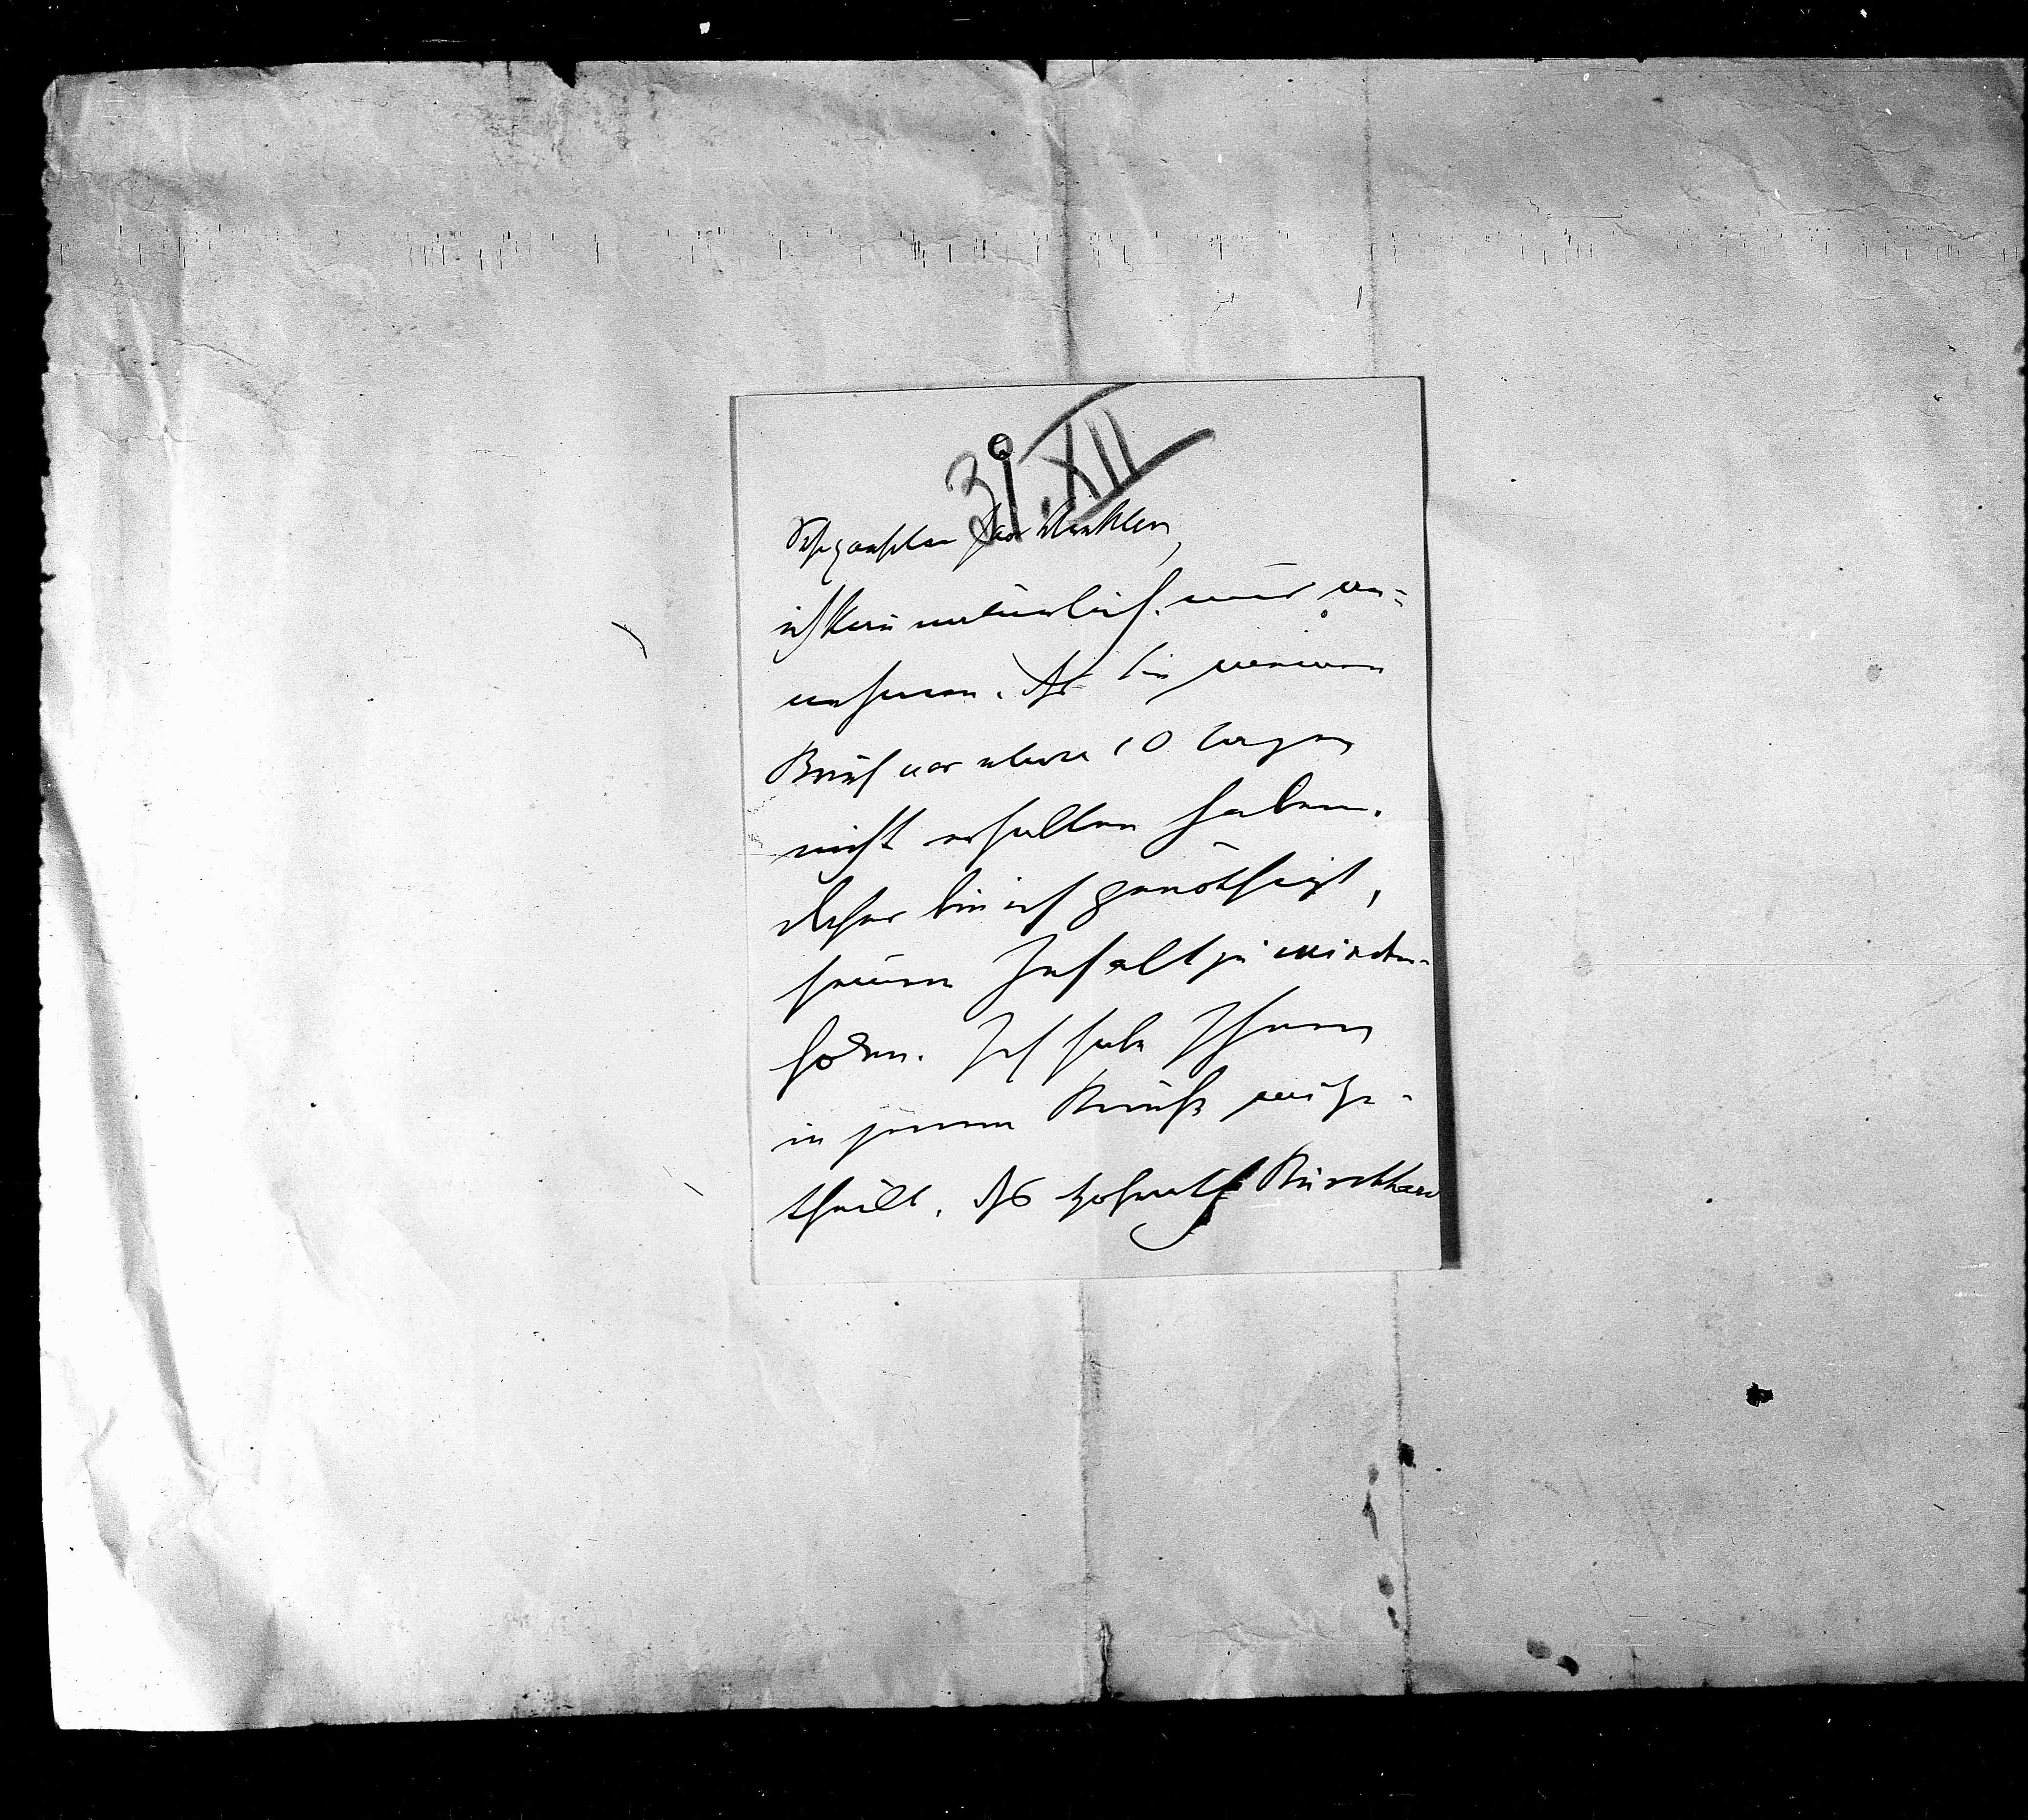 31. XII
Sehr geehrter Herr Winkler,
ich kann natürlich nur an=
nehmen, daß Sie meinen
Brief vor etwa 10 Tagen
nicht erhalten haben.
Daher bin ich genöthigt,
seinen Inhalt zu wieder-
holen. Ich habe Ihnen
in jenem Briefe mitge-
theilt, daß Hofrath Burckhard